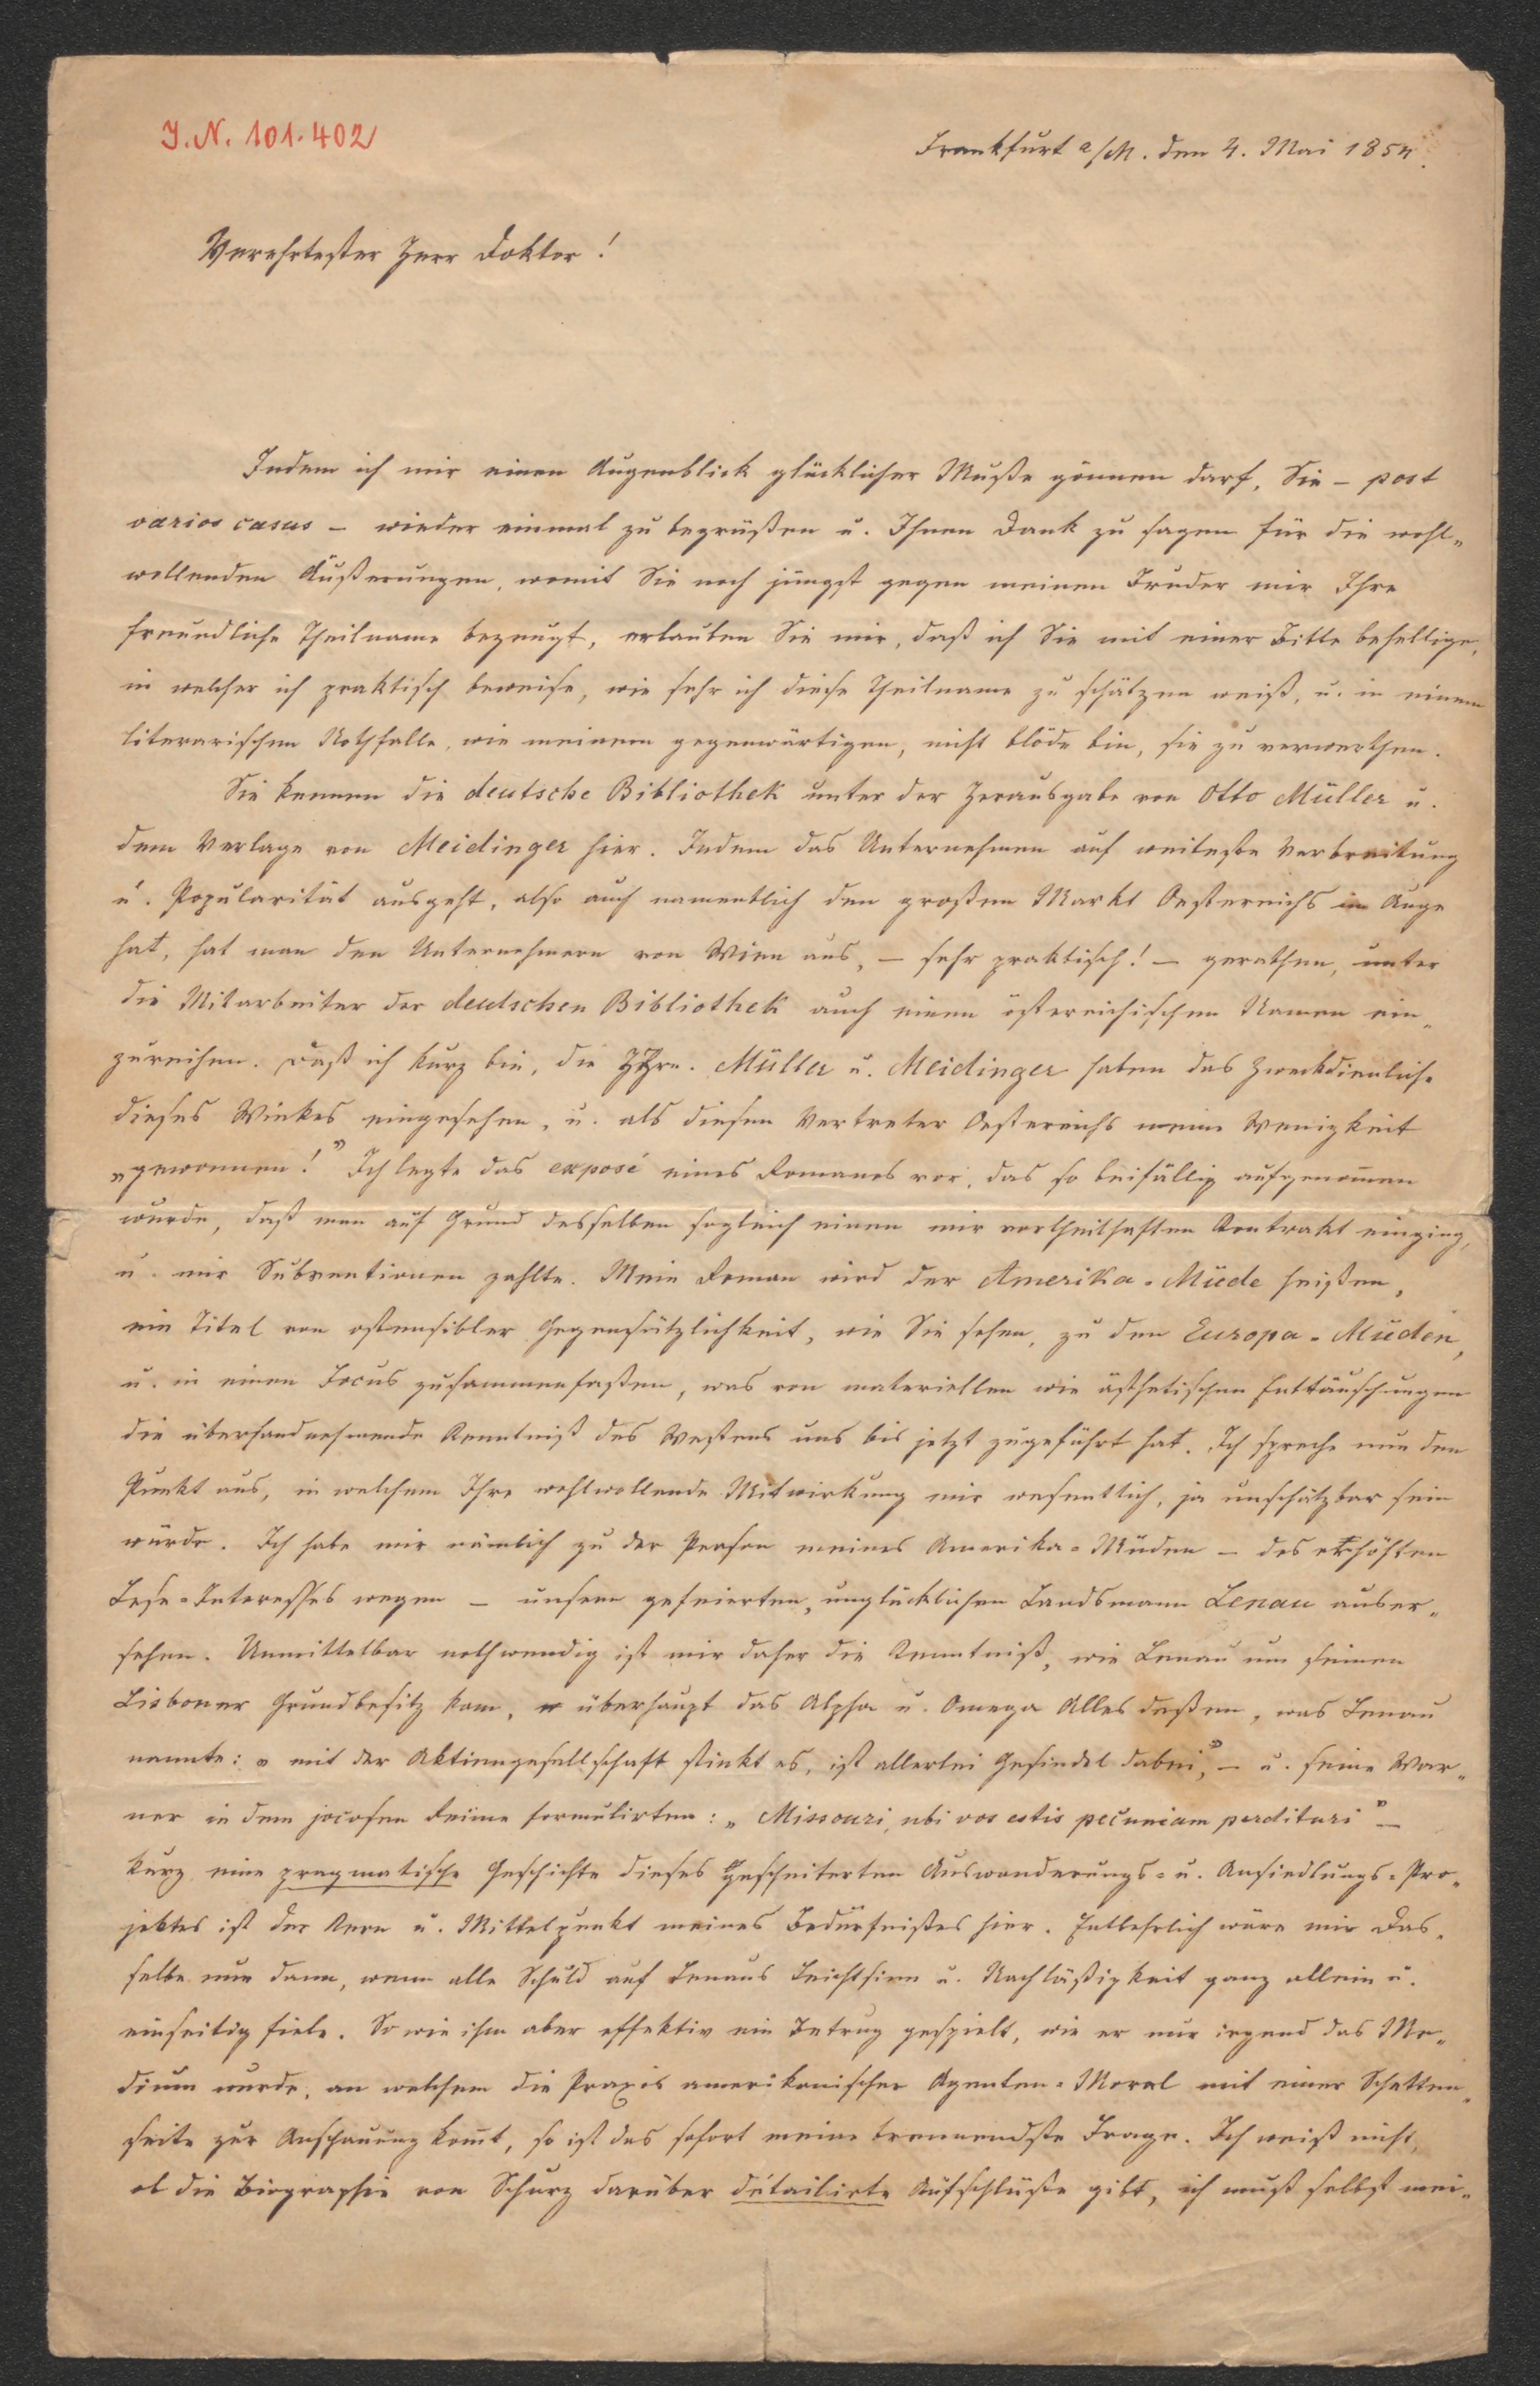 I.N. 101.402
Frankfurt a/M. den 4. Mai 1854.
Verehrtester Herr Doktor!
Indem ich mir einen Augenblick glücklicher Muße gönnen darf, Sie – post
varios casus – wieder einmal zu begrüßen u. Ihnen Dank zu sagen für die wohl„
wollenden Äußerungen, womit Sie noch jüngst gegen meinen Bruder mir Ihre
freundliche Theilname bezeugt, erlauben Sie mir, daß ich Sie mit einer Bitte behellige,
in welcher ich praktisch beweise, wie sehr ich diese Theilname zu schätzen weiß, u. in einem
literarischen Nothfalle, wie meinem gegenwärtigen, nicht blöde bin, sie zu verwerthen.
Sie kennen die deutsche Bibliothek unter der Herausgabe von Otto Müller u.
dem Verlage von Meidinger hier. Indem das Unternehmen auf weiteste Verbreitung
u. Popularität ausgeht, also auch namentlich den großen Markt Oesterreichs im Auge
hat, hat man den Unternehmern von Wien aus, – sehr praktisch! – gerathen, unter
die Mitarbeiter der deutschen Bibliothek auch einen österreichischen Namen ein„
zureihen. Daß ich kurz bin, die HHrn. Müller u. Meidinger haben das Zweckdienliche
dieses Winkes eingesehen, u. als diesen Vertreter Oesterreichs meine Wenigkeit
„gewonnen!" Ich legte das exposé eines Romanes vor, das so beifällig aufgenom̄en
wurde, daß man auf Grund desselben sogleich einen mir vortheilhaften Kontrakt einging,
u. mir Subventionen zahlte. Mein Roman wird der Amerika-Müde heißen,
ein Titel von ostensibler Gegensätzlichkeit, wie Sie sehen, zu den Europa-Müden,
u. in einen Focus zusammenfaßen, was von materiellen wie ästhetischen Enttäuschungen
die überhandnehmende Kenntniß des Westens uns bis jetzt zugeführt hat. Ich spreche nun den
Punkt aus, in welchem Ihre wohlwollende Mitwirkung mir wesentlich, ja unschätzbar sein
würde. Ich habe mir nämlich zu der Person meines Amerika-Müden – des erhöhten
Lese-Interesses wegen – unsern gefeierten, unglücklichen Landsmann Lenau auser„
sehen. Unmittelbar nothwendig ist mir daher die Kenntniß, wie Lenau um seinen
Lisboner Grundbesitz kam, überhaupt das Alpha u. Omega Alles deßen, was Lenau
nannte: „mit der Aktiengesellschaft stinkt es, ist allerlei Gesindel dabei," – u. seine War„
ner in dem jocosen Reime formulirten: „Missouri, ubi vos estis pecuniam perdituri" –
kurz eine pragmatische Geschichte dieses gescheiterten Auswanderungs- u. Ansiedlungs-Pro„
jektes ist der Kern u. Mittelpunkt meines Bedürfnißes hier. Entbehrlich wäre mir das„
selbe nur dann, wenn alle Schuld auf Lenaus Leichtsinn u. Nachläßigkeit ganz allein u.
einseitig fiele. So wie ihm aber effektiv ein Betrug gespielt, wie er nur irgend das Me„
dium wurde, an welchem die Praxis amerikanischer Agenten-Moral mit einer Schatten„
seite zur Anschauung kom̄t, so ist das sofort meine brennendste Frage. Ich weiß nicht,
ob die Biographie von Schurz darüber détailirte Aufschlüße gibt, ich muß selbst mei„